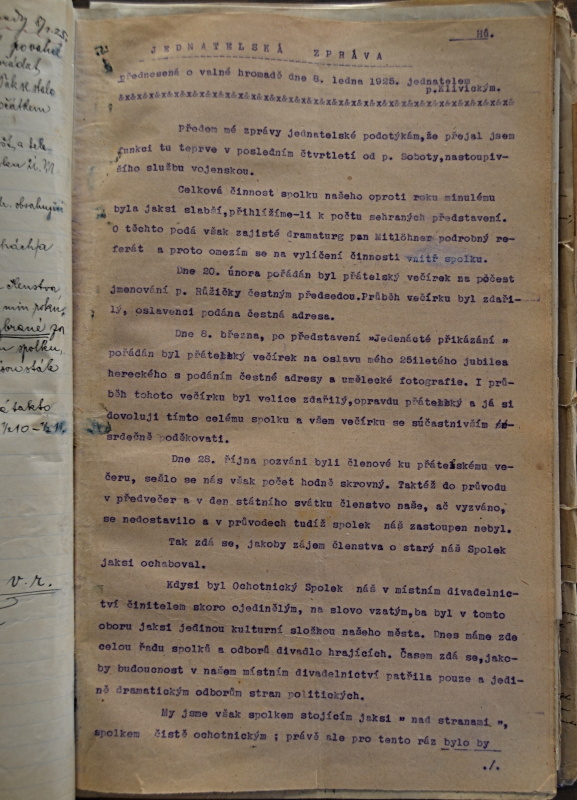 ady 8/1.25.
povahá
počátkem
v. r.
H6.
JEDNATELSKÁ ZPRÁVA
přednesená o valné hromadě dne 8. ledna 1925. jednatelem
p.Klivickým.
Předem mé zprávy jednatelské podotýkám,že přejal jsem
funkci tu teprve v posledním čtvrtletí od p. Soboty,nastoupiv-
čího službu vojenskou.
Celková činnost spolku našeho oproti roku minulému
byla jaksi slabší,přihlížíme-li k počtu sehraných představení.
O těchto podá však zajisté dramaturg pan Mitlöhner podrobný re-
ferát a proto omezím se na vylíčení činnosti vnitř spolku.
Dne 20. února pořádán byl přátelský večírek na počest
jmenování p. Růžičky čestným předsedou.Průběh večírku byl zdaři-
lý, oslavenci podána čestná adresa.
Dne 8. března, po představení "Jedenácté přikázání "
pořádán byl přátelský večírek na oslavu mého 25iletého jubilea
hereckého s podáním čestné adresy a umělecké fotografie. I prů-
běh tohoto večírku byl velice zdařilý,opravdu přátelský a já si
dovoluji tímto celému spolku a všem večírku se súčastnivším
srdečně poděkovati.
Dne 28. října pozváni byli členové ku přátelskému ve-
čeru, sešlo se nás však počet hodně skrovný. Taktéž do průvodu
v předvečer a v den státního svátku členstvo naše, ač vyzváno,
se nedostavilo a v průvodech tudíž spolek náš zastoupen nebyl.
Tak zdá se, jakoby zájem členstva o starý náš Spolek
jaksi ochaboval.
Kdysi byl Ochotnický Spolek náš v místním divadelnic-
tví činitelem skoro ojedinělým, na slovo vzatým,ba byl v tomto
oboru jaksi jedinou kulturní složkou našeho města. Dnes máme zde
celou řadu spolků a odborů divadlo hrajících. Časem zdá se,jako-
by budoucnost v našem místním divadelnictví patřila pouze a jedi-
ně dramatickým odborům stran politických.
My jsme však spolkem stojícím jaksi " nad stranami ",
spolkem čistě ochotnickým ; právě ale pro tento ráz bylo by
./.